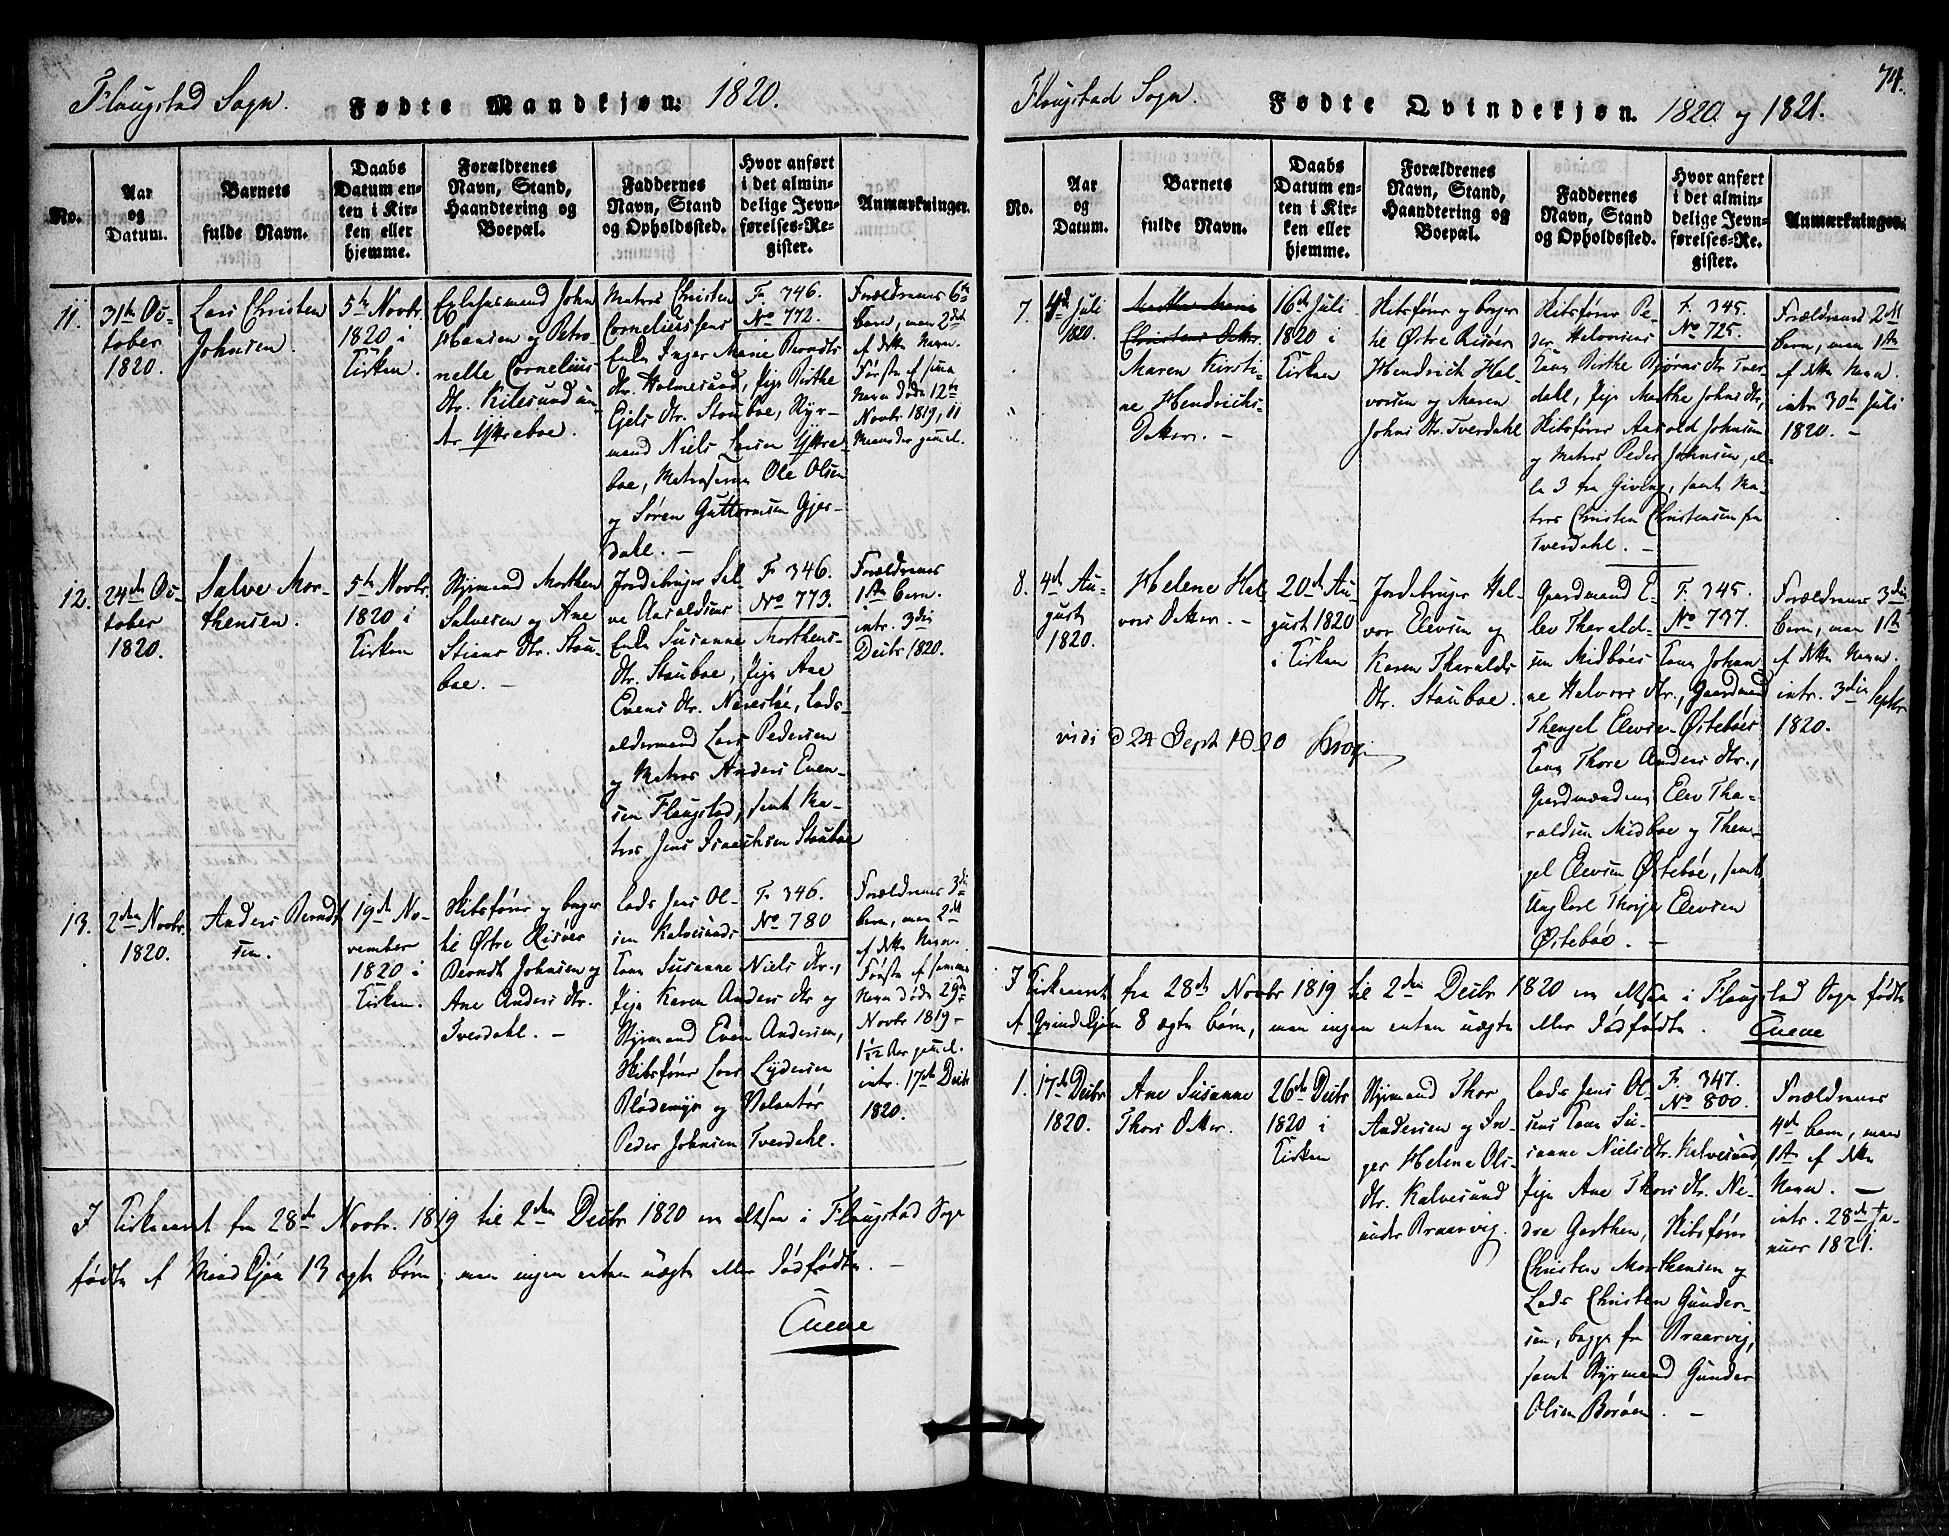 Flougstad Sogn. Fødte Mandkjøn. 1820.
No.
Aar
og
Datum.
Barnets
fulde Navn.
Daabs
Datum en-
ten i Kir-
ken eller
hjemme.
Forældrenes
Navn, Stand,
Haandtering og
Boepæl.
Faddernes
Navn, Stand
og Opholdssted.
Hvor anført
i det almin-
delige Jevn-
førelses-Re-
gister.
Anmærkninger.
11.
31te Oc-
tober
1820.
Lars Christen
Johnsen.
5te Novbr.
1820 i
Kirken.
John
Hansen og Petro-
nelle Cornelius
Dtr. Kilesund un-
der Yttreboe.
Matros Christen
Corneliussens
Enke Inger Marie Berndts
Dtr. Holmesund, Pige Birthe
Ejels Dtr. Stauboe, Styr-
mand Niels Larsen Yttre-
boe, Matroserne Ole Olsen
og Søren Guttormsen Gjer-
dahl. —
F. 346.
No 772.
Forældrenes 6te
barn, men 2det
af dette Navn.
Første af samme
Navn døde 12te
Novbr 1819, 11
Maaneder gammel.
12.
24de Oc-
tober
1820.
Salve Mor-
thensen.
5te Novbr.
1820 i
Kirken
Styrmand Morthen
Salvesen og Ane
Stians Dtr. Stau-
boe. —
Jordebruger Sal-
ve Aasoldsens
Enke Susanne Morthens-
Dtr. Stauboe, Pige Ane
Evens Dtr. Nævesbøe, Lods-
oldermand Lars Pedersen
og Matros Anders Even-
sen Flougstad, samt Ma-
tros Jens Isaachsen Stauboe
F. 346.
No 773.
Forældrenes
1ste barn.
intr. 3die
Decbr 1820.
13.
2den Novbr.
1820.
Anders Berndt-
sen.
19de No-
vember
1820 i
Kirken.
Skibsfører og borger
til Østre Risøer
Berndt Johnsen og
Ane Anders Dtr.
Tverdahl. —
Lods Jens Ol-
sen Kalvesunds
Kone Susanne Niels Dtr.,
Pige Karen Anders Dtr og
Styrmand Even Andersen,
Skibsfører Lars Lydersen
Blødemyr og Volontør
Peder Johnsen Tverdahl.
F. 346.
No 780
Forældrenes 3die
barn, men 2det
af dette Navn.
Første af samme
Navn døde 29de
Novbr 1819 –
1 1/12 Aar gammel.
intr. 17de Decbr
1820.
I Kirkeaaret fra 28de Novbr. 1819 til 2den Decbr 1820 er altsaa i Flougstad Sogn
fødte af Mandkjøn 13 ægte børn, men ingen enten uægte eller dødfødte. —
Tuene
Flougstad Sogn. Fødte Qvindekjøn. 1820 og 1821. 74.
No.
Aar
og
Datum.
Barnets
fulde Navn.
Daabs
Datum en-
ten i Kir-
ken eller
hjemme.
Forældrenes
Navn, Stand,
Haandtering og
Boepæl.
Faddernes
Navn, Stand
og Opholdssted.
Hvor anført
i det almin-
delige Jevn-
førelses-Re-
gister.
Anmærkninger.
7.
4de Juli
1820.
Maren Kirsti-
ne Hendricks-
Datter. —
16de Juli
1820 i
Kirken
Skibsfører og borger
til Østre Risøer
Hendrick Hal-
vorsen og Maren
Johns Dtr. Tverdahl
Skibsfører Pe-
der Halvorsens
Kone Birthe Bjørns Dtr Tver-
dahl, Pige Marthe Johns Dtr,
Skibsfører Aasold Johnsen
og Matros Peder Johnsen, al-
le 3 fra Giving, samt Ma-
tros Christen Christensen fra
Tverdahl. —
F. 345.
No 725.
Forældrenes 2det
barn, men 1ste
af dette Navn.
intr. 30te Juli
1820. —
8.
4de Au-
gust
1820.
Helene Hal-
vors Datter. —
20de Au-
gust 1820
i Kirken
Jordebruger Hal-
vor Elevsen og
Karen Tharalds
Dtr. Stauboe.
Gaardmand E-
lev Tharald-
sen Midboes Kone Johan-
ne Halvors Dtr., Gaardmand
Thengel Elevsen Østeboes
Kone Thore Anders Dtr.,
Gaardmændene Elev Tha-
raldsen Midboe og Then-
gel Elevsen Østebøe, samt
Ungkarl Thorje Elevsen
Østeboe. —
F. 345.
No 737.
Forældrenes 3die
barn, men 1ste
af dette Navn.
intr. 3die Septbr
1820.
vidi d 24 Sept 1820
I Kirkeaaret fra 28de Novbr 1819 til 2den Decbr 1820 er altsaa i Flougstad Sogn fødte
af Qvindekjøn 8 ægte børn, men ingen enten uægte eller dødfødte. Tuene
1.
17de Decbr
1820.
Ane Susanne
Thors Datter.
26de Decbr
1820 i
Kirken
Styrmand Thor
Andersen og In-
ger Helene Ols-
Dtr. Kalvesund
under Braarvig.
Lods Jens Ol-
sens Kone Su-
sanne Niels Dtr. Kalvesund,
Pige Ane Thors Dtr. Ne-
dre Garthen, Skibsfører
Christen Morthensen og
Lods Christen Gunder-
sen, begge fra Braarvig,
samt Styrmand Gunder
Olsen Borøen. —
F. 347.
No 800.
Forældrenes
4de barn, men
1ste af dette
Navn. —
intr. 28de Ja-
nuar 1821.